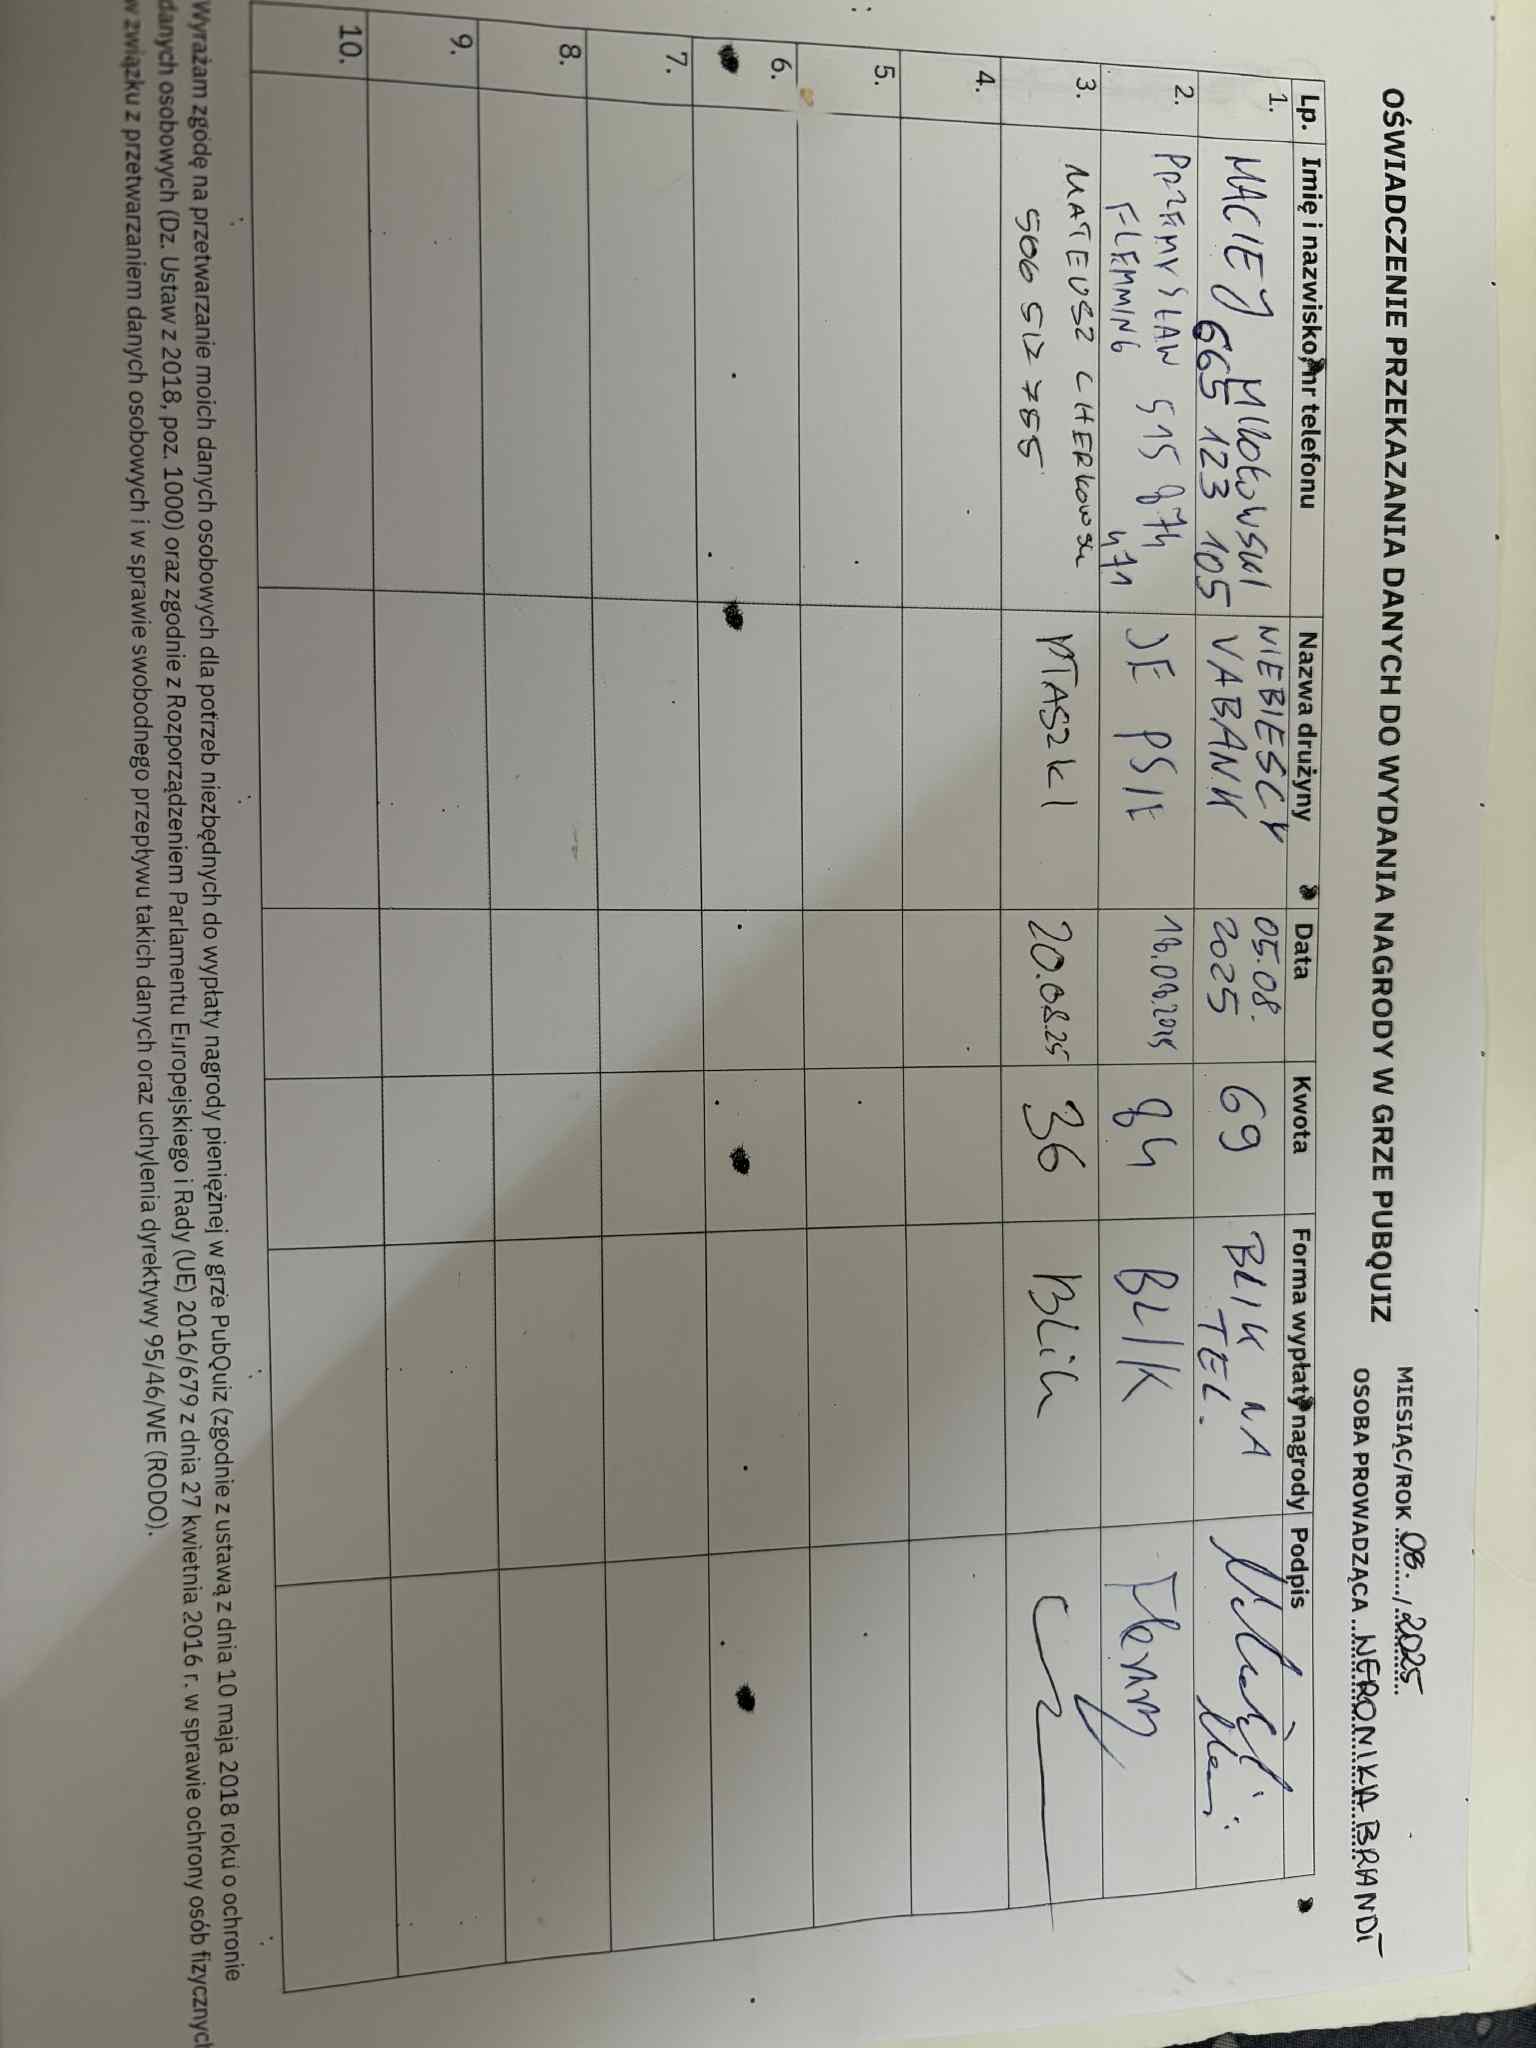 OŚWIADCZENIE PRZEKAZANIA DANYCH DO WYDANIA NAGRODY W GRZE PUBQUIZ
MIESIĄC/ROK 08./2025
OSOBA PROWADZĄCA WERONIKA BRANDT
Lp. Imię i nazwisko, nr telefonu Nazwa drużyny Data Kwota Forma wypłaty nagrody Podpis
1. MACIEJ NIEBIESCY 05.08. 69 BLIK NA
665 123 105 VABANK 2025 TEL.
2. PRZEMYSŁAW 515 874 JE PSIE 84 BLIK
FLEMMING 471
3. MATEUSZ PTASZKI 20.08.25 36 BLik
506 512 785
4.
5.
6.
7.
8.
9.
10.
Wyrażam zgodę na przetwarzanie moich danych osobowych dla potrzeb niezbędnych do wypłaty nagrody pieniężnej w grze PubQuiz (zgodnie z ustawą z dnia 10 maja 2018 roku o ochronie
danych osobowych (Dz. Ustaw z 2018, poz. 1000) oraz zgodnie z Rozporządzeniem Parlamentu Europejskiego i Rady (UE) 2016/679 z dnia 27 kwietnia 2016 r. w sprawie ochrony osób fizycznych
w związku z przetwarzaniem danych osobowych i w sprawie swobodnego przepływu takich danych oraz uchylenia dyrektywy 95/46/WE (RODO).